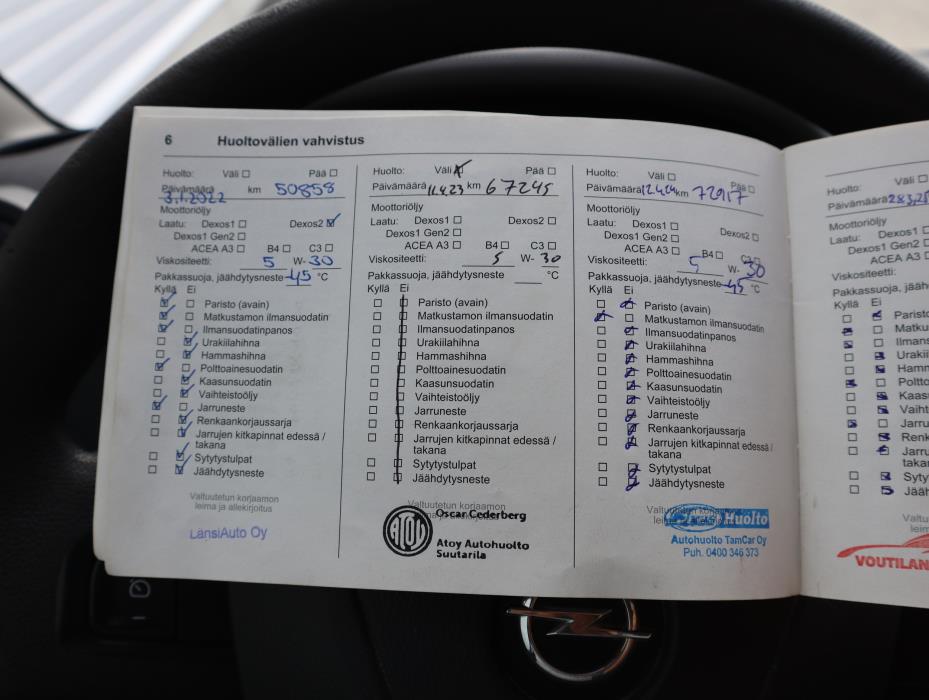 6 Huoltovälien vahvistus
Huolto: Väli ☐ Pää ☐
Päivämäärä km 50858
3.1.2022
Moottoriöljy
Laatu: Dexos1 ☐ Dexos2 ☑
Dexos1 Gen2 ☐
ACEA A3 ☐ B4 ☐ C3 ☐
Viskositeetti: 5 W- 30
Pakkassuoja, jäähdytysneste -45 °C
Kyllä Ei
☑ ☐ Paristo (avain)
☑ ☐ Matkustamon ilmansuodatin
☑ ☐ Ilmansuodatinpanos
☐ ☑ Urakiilahihna
☐ ☑ Hammashihna
☑ ☐ Polttoainesuodatin
☐ ☑ Kaasunsuodatin
☐ ☑ Vaihteistoöljy
☑ ☐ Jarruneste
☐ ☑ Renkaankorjaussarja
☐ ☑ Jarrujen kitkapinnat edessä /
takana
☐ ☑ Sytytystulpat
☐ ☑ Jäähdytysneste
Valtuutetun korjaamon
leima ja allekirjoitus
LänsiAuto Oy
Huolto: Väli ☒ Pää ☐
Päivämäärä 11.4.23 km 67245
Moottoriöljy
Laatu: Dexos1 ☐ Dexos2 ☐
Dexos1 Gen2 ☐
ACEA A3 ☐ B4 ☐ C3 ☐
Viskositeetti: 5 W- 30
Pakkassuoja, jäähdytysneste °C
Kyllä Ei
☐ ☐ Paristo (avain)
☐ ☐ Matkustamon ilmansuodatin
☐ ☐ Ilmansuodatinpanos
☐ ☐ Urakiilahihna
☐ ☐ Hammashihna
☐ ☐ Polttoainesuodatin
☐ ☐ Kaasunsuodatin
☐ ☐ Vaihteistoöljy
☐ ☐ Jarruneste
☐ ☐ Renkaankorjaussarja
☐ ☐ Jarrujen kitkapinnat edessä /
takana
☐ ☐ Sytytystulpat
☐ ☐ Jäähdytysneste
Valtuutetun korjaamon
leima ja allekirjoitus
Oscar Cederberg
ATOY
Atoy Autohuolto
Suutarila
Huolto: Väli ☐ Pää ☐
Päivämäärä 12.4.24 km 72917
Moottoriöljy
Laatu: Dexos1 ☐ Dexos2 ☐
Dexos1 Gen2 ☐
ACEA A3 ☐ B4 ☐ C3 ☐
Viskositeetti: 5 W- 30
Pakkassuoja, jäähdytysneste -45 °C
Kyllä Ei
☐ ☑ Paristo (avain)
☑ ☐ Matkustamon ilmansuodatin
☐ ☑ Ilmansuodatinpanos
☐ ☑ Urakiilahihna
☐ ☑ Hammashihna
☐ ☑ Polttoainesuodatin
☐ ☑ Kaasunsuodatin
☐ ☑ Vaihteistoöljy
☐ ☑ Jarruneste
☐ ☑ Renkaankorjaussarja
☐ ☑ Jarrujen kitkapinnat edessä /
takana
☐ ☑ Sytytystulpat
☐ ☑ Jäähdytysneste
Valtuutetun korjaamon
leima ja allekirjoitus
Huolto
Autohuolto TamCar Oy
Puh. 0400 346 373
Huolto: Väli ☐
Päivämäärä 28.3.25
Moottoriöljy
Laatu: Dexos1 ☐
Dexos1 Gen2 ☐
ACEA A3 ☐
Viskositeetti:
Pakkassuoja, jäähd
Kyllä Ei
☐ ☑ Paristo
☑ ☐ Matku
☑ ☐ Ilmans
☐ ☑ Urakii
☐ ☑ Hamm
☑ ☐ Poltto
☐ ☑ Kaas
☐ ☑ Vaiht
☑ ☐ Jarru
☐ ☑ Renk
☐ ☑ Jarru
taka
☐ ☑ Syty
☐ ☑ Jääh
Valtu
VOUTILAN